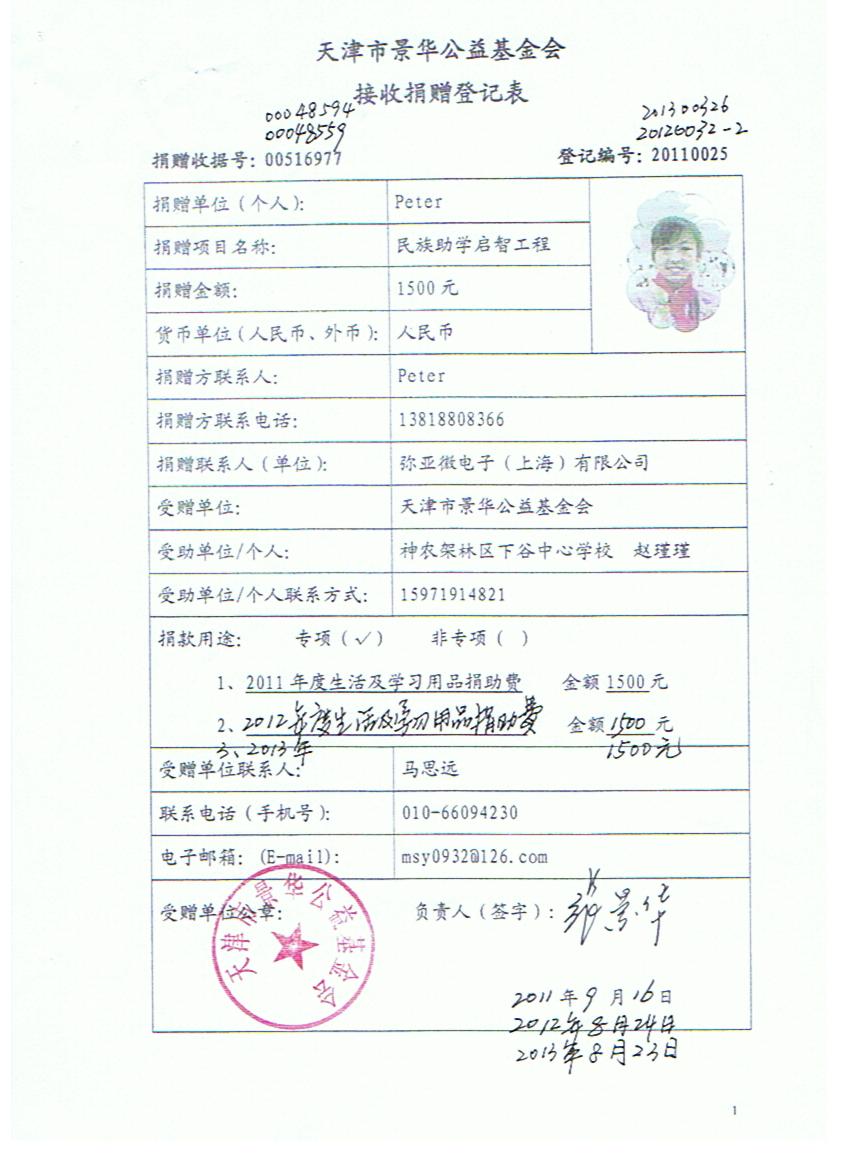 天津市景华公益基金会
接收捐赠登记表
00048594
201300326
00048559
20120032-2
捐赠收据号: 00516977
登记编号: 20110025
捐赠单位（个人）: Peter
捐赠项目名称: 民族助学启智工程
捐赠金额: 1500元
货币单位（人民币、外币）: 人民币
捐赠方联系人: Peter
捐赠方联系电话: 13818808366
捐赠联系人（单位）: 弥亚微电子（上海）有限公司
受赠单位: 天津市景华公益基金会
受助单位/个人: 神农架林区下谷中心学校 赵瑾瑾
受助单位/个人联系方式: 15971914821
捐款用途: 专项（√） 非专项（ ）
1、2011年度生活及学习用品捐助费 金额1500元
2、2012年度生活及学习用品捐助费 金额1500元
3、2013年 1500元
受赠单位联系人: 马思远
联系电话（手机号）: 010-66094230
电子邮箱: (E-mail): msy0932@126.com
受赠单位公章: 负责人（签字）: 景华
天津市景华公益基金会
2011年9月16日
2012年8月24日
2013年8月23日
1